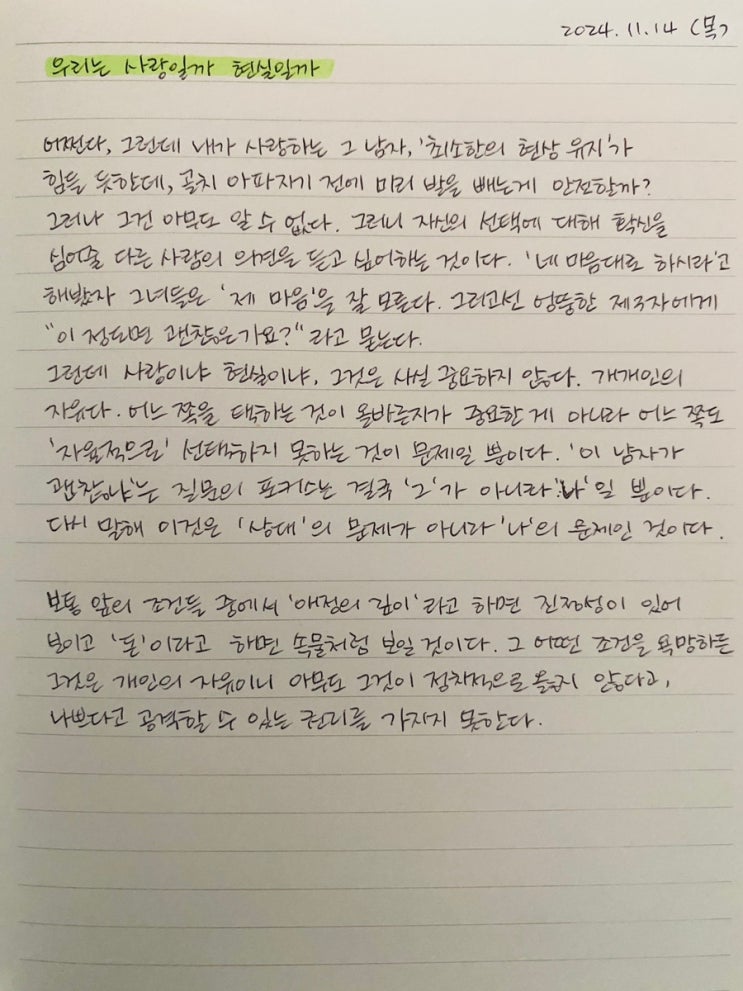 2024.11.14 (목)
우리는 사랑일까 현실일까
어쩐다, 그런데 내가 사랑하는 그 남자, '최소한의 현상 유지'가
힘들 듯한데, 골치 아파지기 전에 미리 발을 빼는게 안전할까?
그러나 그건 아무도 알 수 없다. 그러니 자신의 선택에 대해 확신을
심어줄 다른 사람의 의견을 듣고 싶어하는 것이다. '네 마음대로 하시라'고
해봤자 그녀들은 '제 마음'을 잘 모른다. 그리고선 엉뚱한 제3자에게
"이 정도면 괜찮은가요?"라고 묻는다.
그런데 사랑이냐 현실이냐, 그것은 사실 중요하지 않다. 개개인의
자유다. 어느 쪽을 택하는 것이 올바른지가 중요한 게 아니라 어느 쪽도
'자율적으로' 선택하지 못하는 것이 문제일 뿐이다. '이 남자가
괜찮냐'는 질문의 포커스는 결국 '그'가 아니라 '나'일 뿐이다.
다시 말해 이것은 '상대'의 문제가 아니라 '나'의 문제인 것이다.
보통 앞의 조건들 중에서 '애정의 깊이'라고 하면 진정성이 있어
보이고 '돈'이라고 하면 속물처럼 보일 것이다. 그 어떤 조건을 욕망하든
그것은 개인의 자유이니 아무도 그것이 정치적으로 옳지 않다고,
나쁘다고 공격할 수 있는 권리를 가지지 못한다.